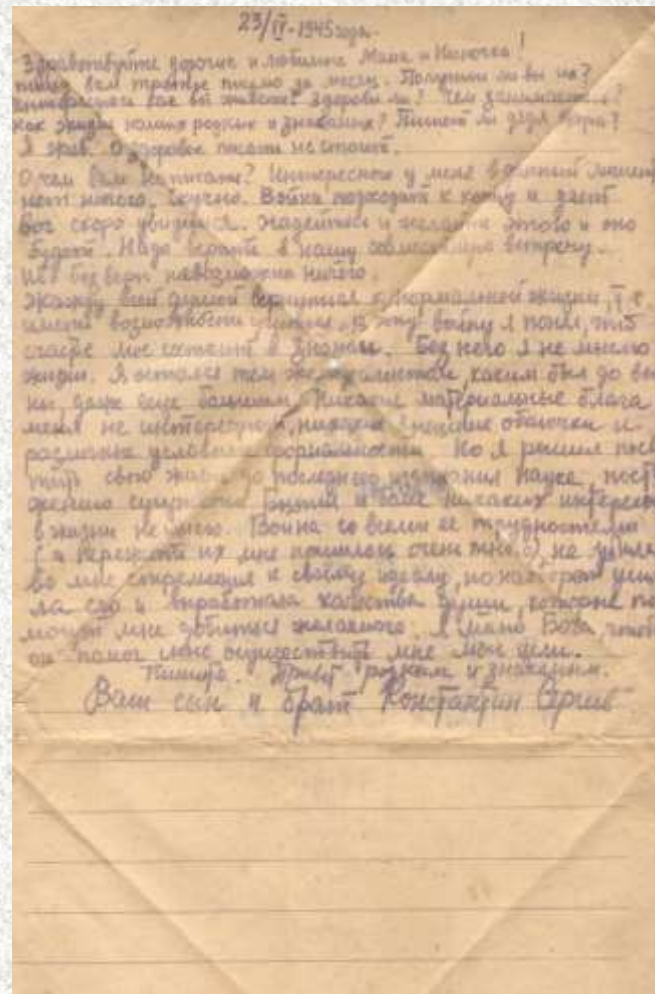 23/IV-1945 года.
Здравствуйте дорогие и любимые Мама и Ниночка!
Пишу вам третье письмо за месяц. Получили ли вы их?
как вы живете? Здоровы ли? Чем занимаетесь?
Как жизнь наших родных и знакомых? Пишет ли дядя
Я жив. О здоровье писать не стоит.
О чем Вам написать? Интересного у меня в данный момент
нет ничего. Скучно. Война подходит к концу и даст
Бог скоро увидимся. Надейтесь и желайте этого и оно
будет. Надо верить в нашу совместную встречу.
Ибо без веры невозможно ничего.
Жажду всей душой вернуться к нормальной жизни, т.е.
иметь возможность учиться. В эту войну я понял, что
счастье мое состоит в знании. Без него я не мыслю
жизни. Я остался тем же идеалистом, каким был до вой
ны, даже еще большим. Никакие материальные блага
меня не интересуют, никакие внешние оболочки и
различные условные формальности. Но я решил посвя
тить свою жизнь до последнего издыхания науке, пости
жению сущности Бытия и более никаких интересов
в жизни не имею. Война со всеми ее трудностями
(а пережить их мне пришлось очень много) не убила
во мне стремления к своему идеалу, но наоборот усили
ла его и выработала качества души, которые по
могут мне добиться желаемого. Я молю Бога, чтобы
он помог мне осуществить мне мои цели.
Пишите. Привет родным и знакомым.
Ваш сын и брат Константин